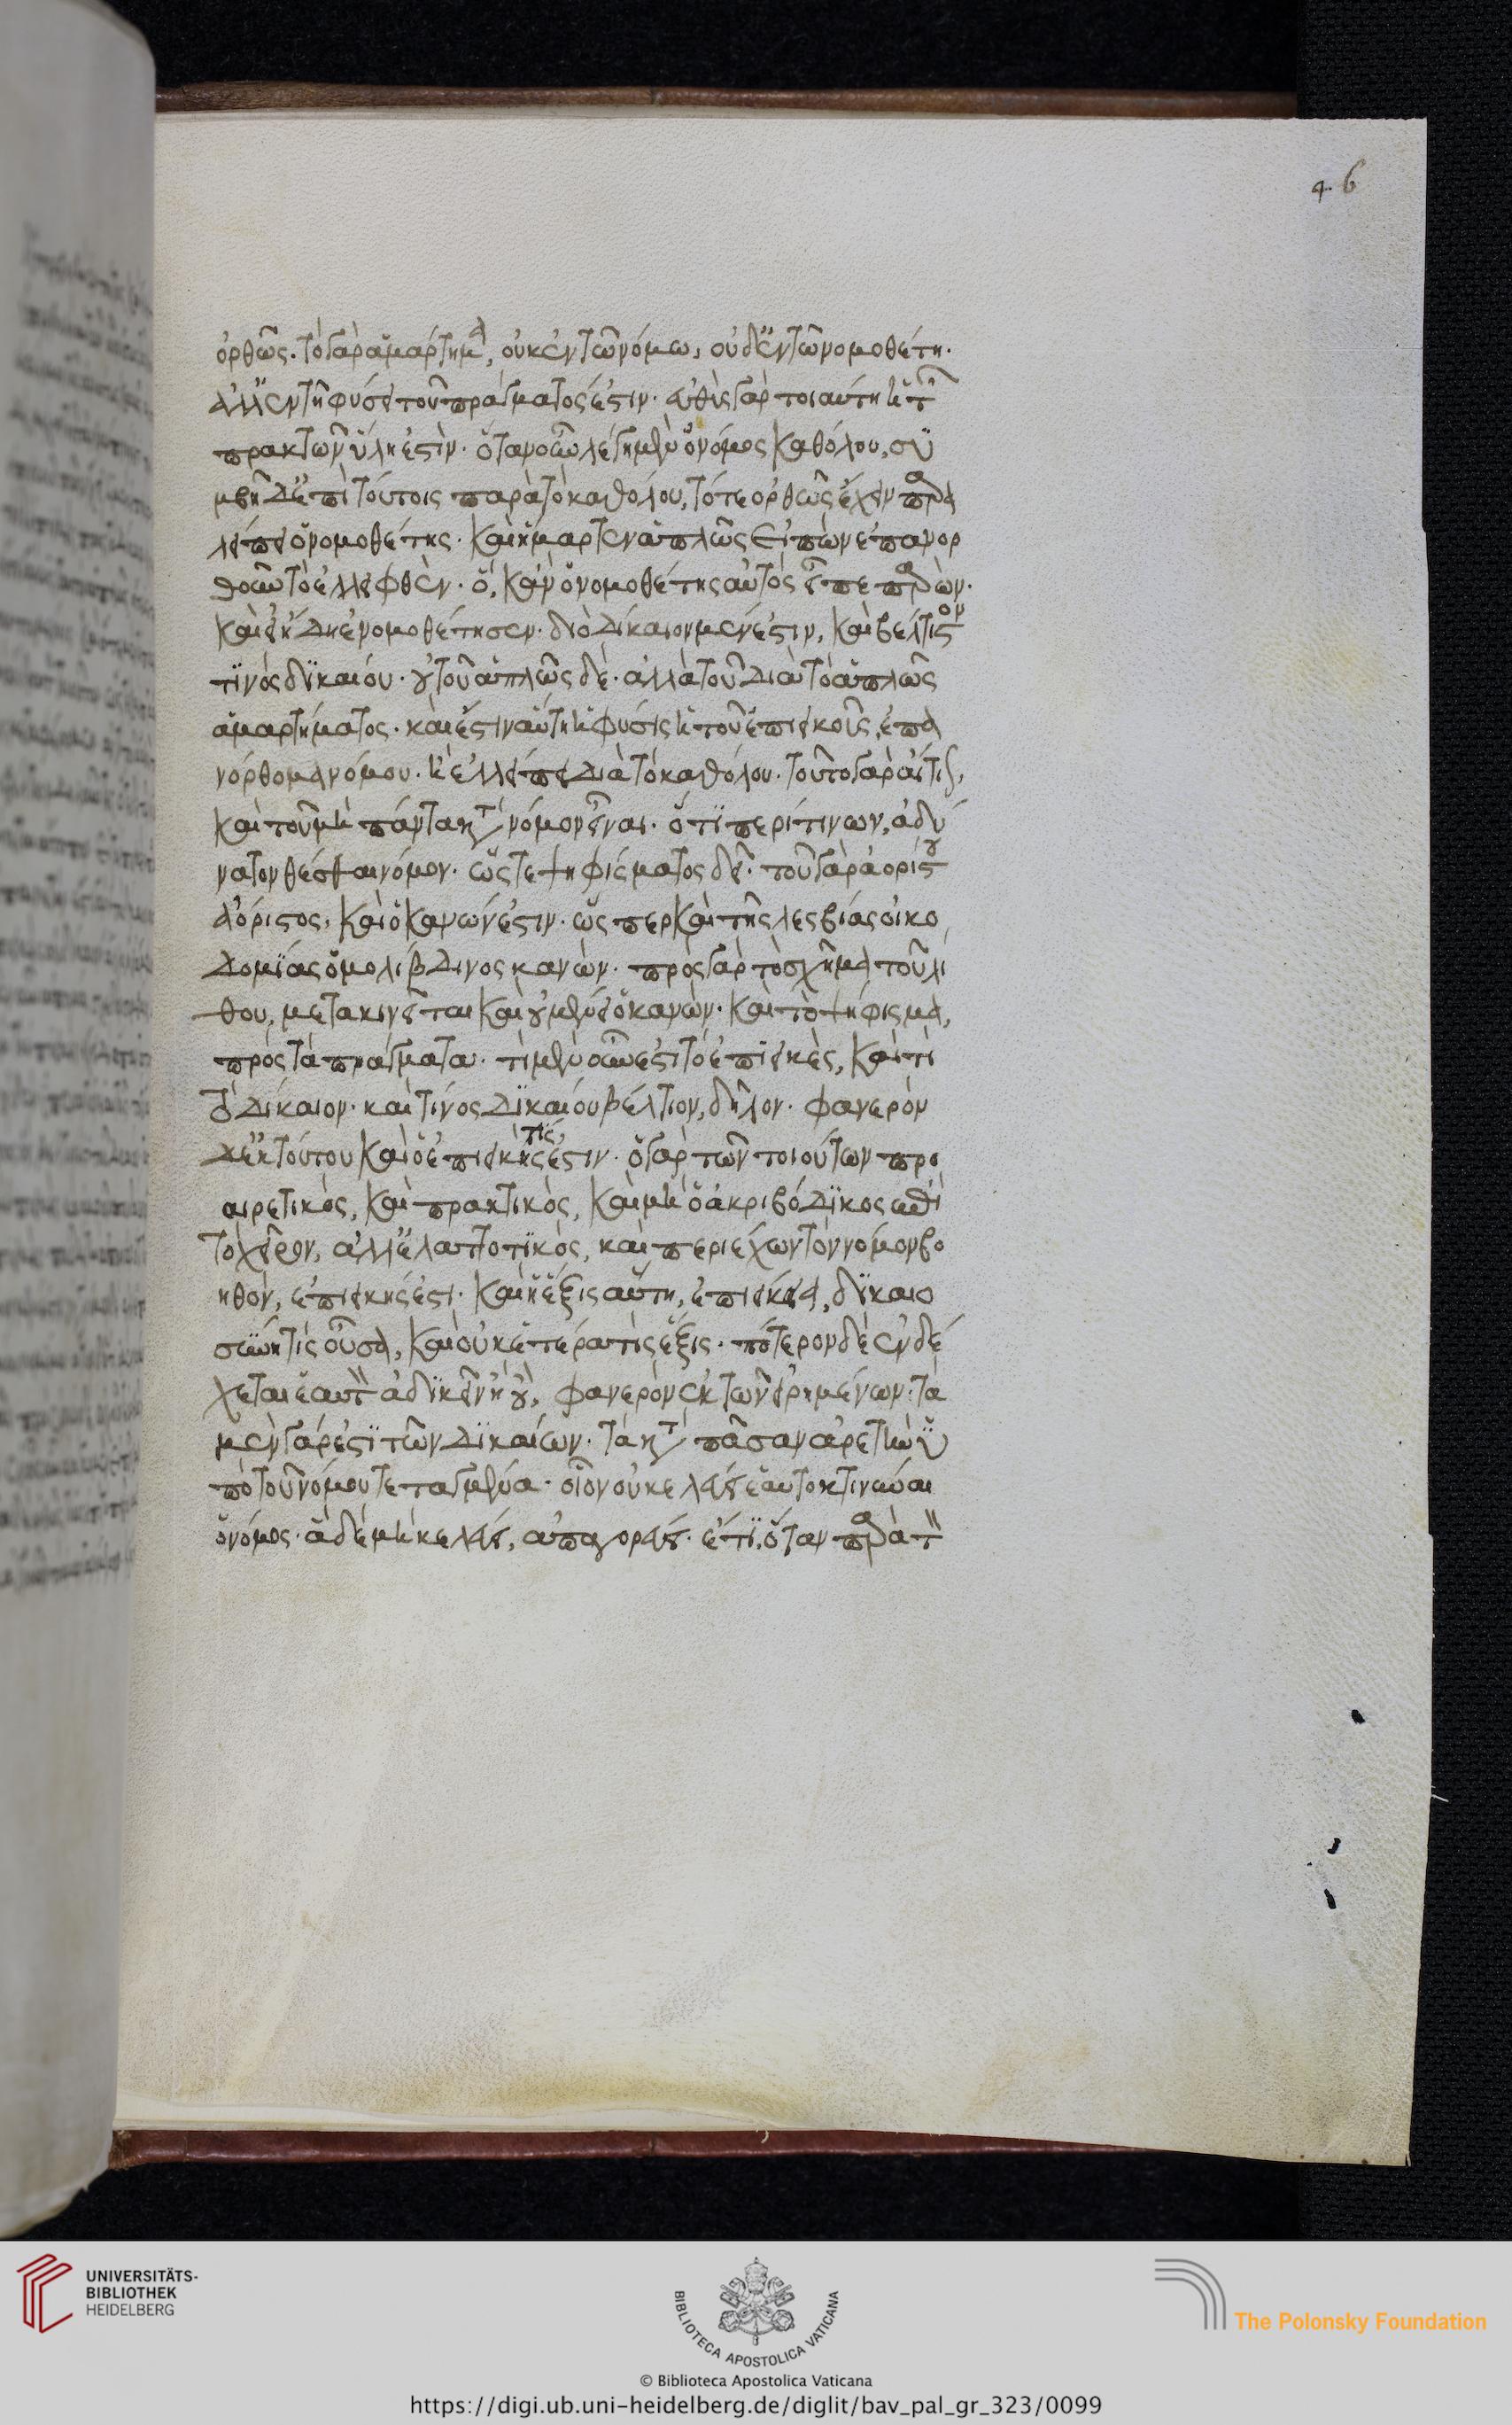 46
ὀρθῶς. τὸ γὰρ ἁμάρτημα, οὐκ ἐν τῶ νόμω, οὐδ' ἐν τῶ νομοθέτη.
ἀλλ' ἐν τῆ φύσει τοῦ πράγματός ἐστιν. εὐθὺς γὰρ τοιαύτη ἡ τῶν
πρακτῶν ὕλη ἐστὶν. ὅταν οὖν λέγη μὲν ὁ νόμος καθόλου, συμ
βῆ δ' ἐπὶ τούτοις παρὰ τὸ καθόλου, τότε ὀρθῶς ἔχειν παρα
λείπει ὁ νομοθέτης. καὶ ἥμαρτεν ἁπλῶς εἰπὼν ἐπανορ
θοῦν τὸ ἐλλειφθὲν. ὃ, κἂν ὁ νομοθέτης αὐτὸς εἶπε παρὼν.
καὶ εἰ ἤδη ἐνομοθέτησεν. διὸ δίκαιον μέν ἐστιν, καὶ βέλτιον
τινὸς δικαίου. οὐ τοῦ ἁπλῶς δὲ. ἀλλὰ τοῦ διὰ τὸ ἁπλῶς
ἁμαρτήματος. καὶ ἔστιν αὕτη ἡ φύσις ἡ τοῦ ἐπιεικοῦς, ἐπα
νόρθομα νόμου. ἡ ἐλλείπει διὰ τὸ καθόλου. τοῦτο γὰρ αἴτιον,
καὶ τοῦ μὴ πάντα κατὰ νόμον εἶναι. ὅτι περί τινων, ἀδύ
νατον θέσθαι νόμον. ὥστε ψηφίσματος δεῖ. τοῦ γὰρ ἀορίστου
ἀόριστος, καὶ ὁ κανών ἐστιν. ὥσπερ καὶ τῆς λεσβίας οἰκο
δομίας ὁ μολίβδινος κανὼν. πρὸς γὰρ τὸ σχῆμα τοῦ λί
θου, μετακινεῖται καὶ οὐ μένει ὁ κανὼν. καὶ τὸ ψήφισμα,
πρὸς τὰ πράγματα. τί μὲν οὖν ἐστὶ τὸ ἐπιεικὲς, καὶ τί
τὸ δίκαιον. καὶ τίνος δικαίου βέλτιον, δῆλον. φανερὸν
δ' ἐκ τούτου καὶ ὁ ἐπιεικὴς τίς ἐστιν. ὁ γὰρ τῶν τοιούτων προ
αιρετικὸς, καὶ πρακτικὸς, καὶ μὴ ὁ ἀκριβόδικος ἐπὶ
τὸ χεῖρον, ἀλλ' ἐλαττοτικὸς, καὶ περιέχων τὸν νόμον βο
ηθὸν, ἐπιεικής ἐστι. καὶ ἡ ἕξις αὕτη, ἐπιείκεια, δικαιο
σύνη τὶς οὖσα, καὶ οὐκ ἑτέρα τὶς ἕξις. πότερον δὲ ἐνδέ
χεται ἑαυτὸν ἀδικεῖν ἢ οὒ, φανερὸν ἐκ τῶν εἰρημένων. τὰ
μὲν γάρ ἐστι τῶν δικαίων. τὰ κατὰ πᾶσαν ἀρετὴν ὑ
πὸ τοῦ νόμου τεταγμένα. οἷον οὐ κελεύει ἑαυτὸ κτιννύναι
ὁ νόμος. ἃ δὲ μὴ κελεύει, ἀπαγορεύει. ἔτι, ὅταν παρὰ τὸν
UNIVERSITÄTS-
BIBLIOTHEK
HEIDELBERG
BIBLIOTECA APOSTOLICA VATICANA
The Polonsky Foundation
© Biblioteca Apostolica Vaticana
https://digi.ub.uni-heidelberg.de/diglit/bav_pal_gr_323/0099